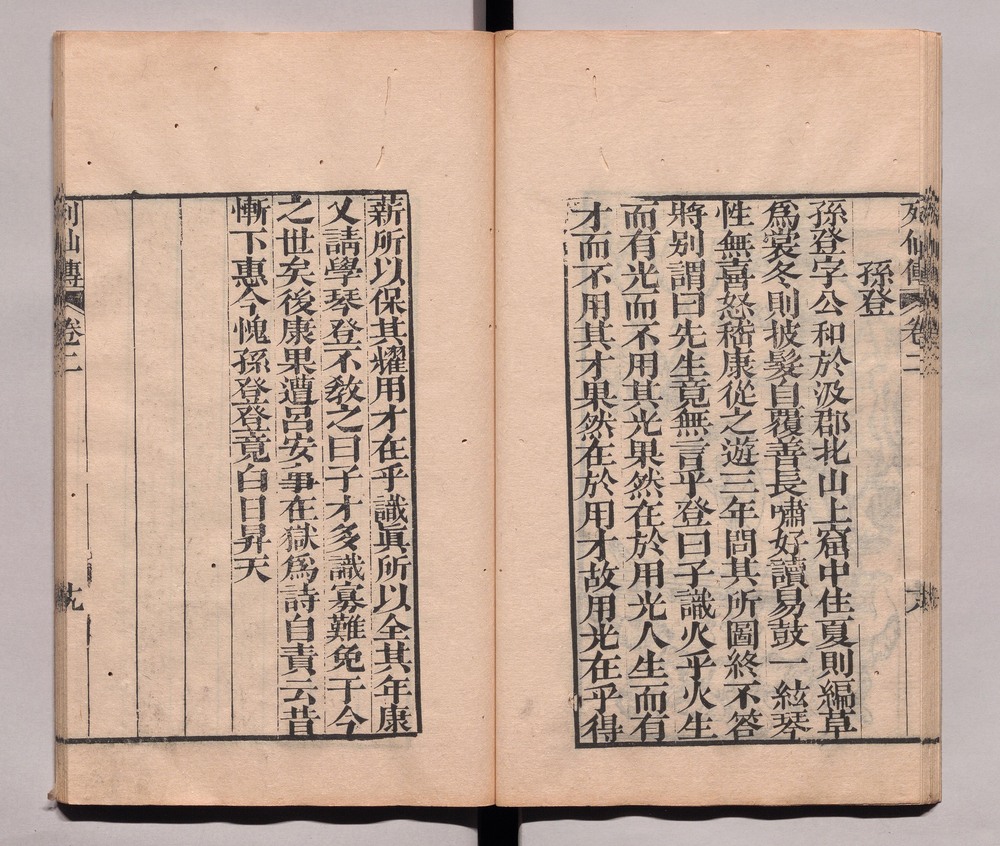 列仙傳 卷二
孫登
孫登字公和於汲郡北山上窟中住夏則編草
爲裳冬則披髮自覆善長嘯好讀易鼓一絃琴
性無喜怒嵇康從之遊三年問其所圖終不答
將別謂曰先生竟無言乎登曰子識火乎火生
而有光而不用其光果然在於用光人生而有
才而不用其才果然在於用才故用光在乎得
薪所以保其耀用才在乎識眞所以全其年康
又請學琴登不敎之曰子才多識寡難免于今
之世矣後康果遭呂安事在獄爲詩自責云昔
慚下惠今愧孫登登竟白日昇天
列仙傳 卷二